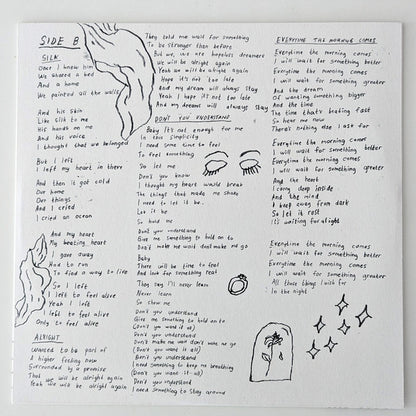 SIDE B
SILK
Once I knew him
We shared a bed
And a home
We painted all the walls
And his skin
Like silk to me
His hands on me
And his voice
I thought that we belonged
But I left
I left my heart in there
And then it got cold
Our home
Our things
And I cried
I cried an ocean
And my heart
My beating heart
I gave away
Had to run
To find a way to live
So I left
I left to feel alive
Yeah I left
I left to feel alive
Only to feel alive
ALRIGHT
Wanted to be part of
A higher feeling now
Surrounded by a promise
That we will be alright again
Yeah we will be alright again
They told me wait for something
To be stronger than before
But no, we are hopeless dreamers
We will be alright again
Yeah we will be alright again
Hope it's not too late
And my dream will always stay
Yeah I hope it's not too late
And my dreams will always stay
DON'T YOU UNDERSTAND
Baby it's not enough for me
In this simplicity
I need some time to feel
To feel something
So let me
Don't you know
I thought my heart would break
The things that made me shake
I need to let it be
Let it be
So hold me
Don't you understand
Give me something to hold on to
Don't make me wait don't make me go
Baby
There will be time to feel
And look for something real
They say I'll never learn
Never learn
So show me
Don't you understand
Give me something to hold on to
(Don't you want it all)
Don't you understand
Don't make me wait don't make me go
(Don't you want it all)
Don't you understand
I need something to keep me breathing
(Don't you want it all)
Don't you understand
I need something to stay around
EVERYTIME THE MORNING COMES
Everytime the morning comes
I will wait for something better
Everytime the morning comes
I will wait for something greater
And the dream
Of wanting something bigger
And the time
The time that's beating fast
So hear me now
There's nothing else I ask for
Everytime the morning comes
I will wait for something better
Everytime the morning comes
I will wait for something greater
And the heart
I carry deep inside
And the mind
I keep away from dark
So let it rest
It's waiting for a light
Everytime the morning comes
I will wait for something better
Everytime the morning comes
I will wait for something greater
All those things I wish for
In the night